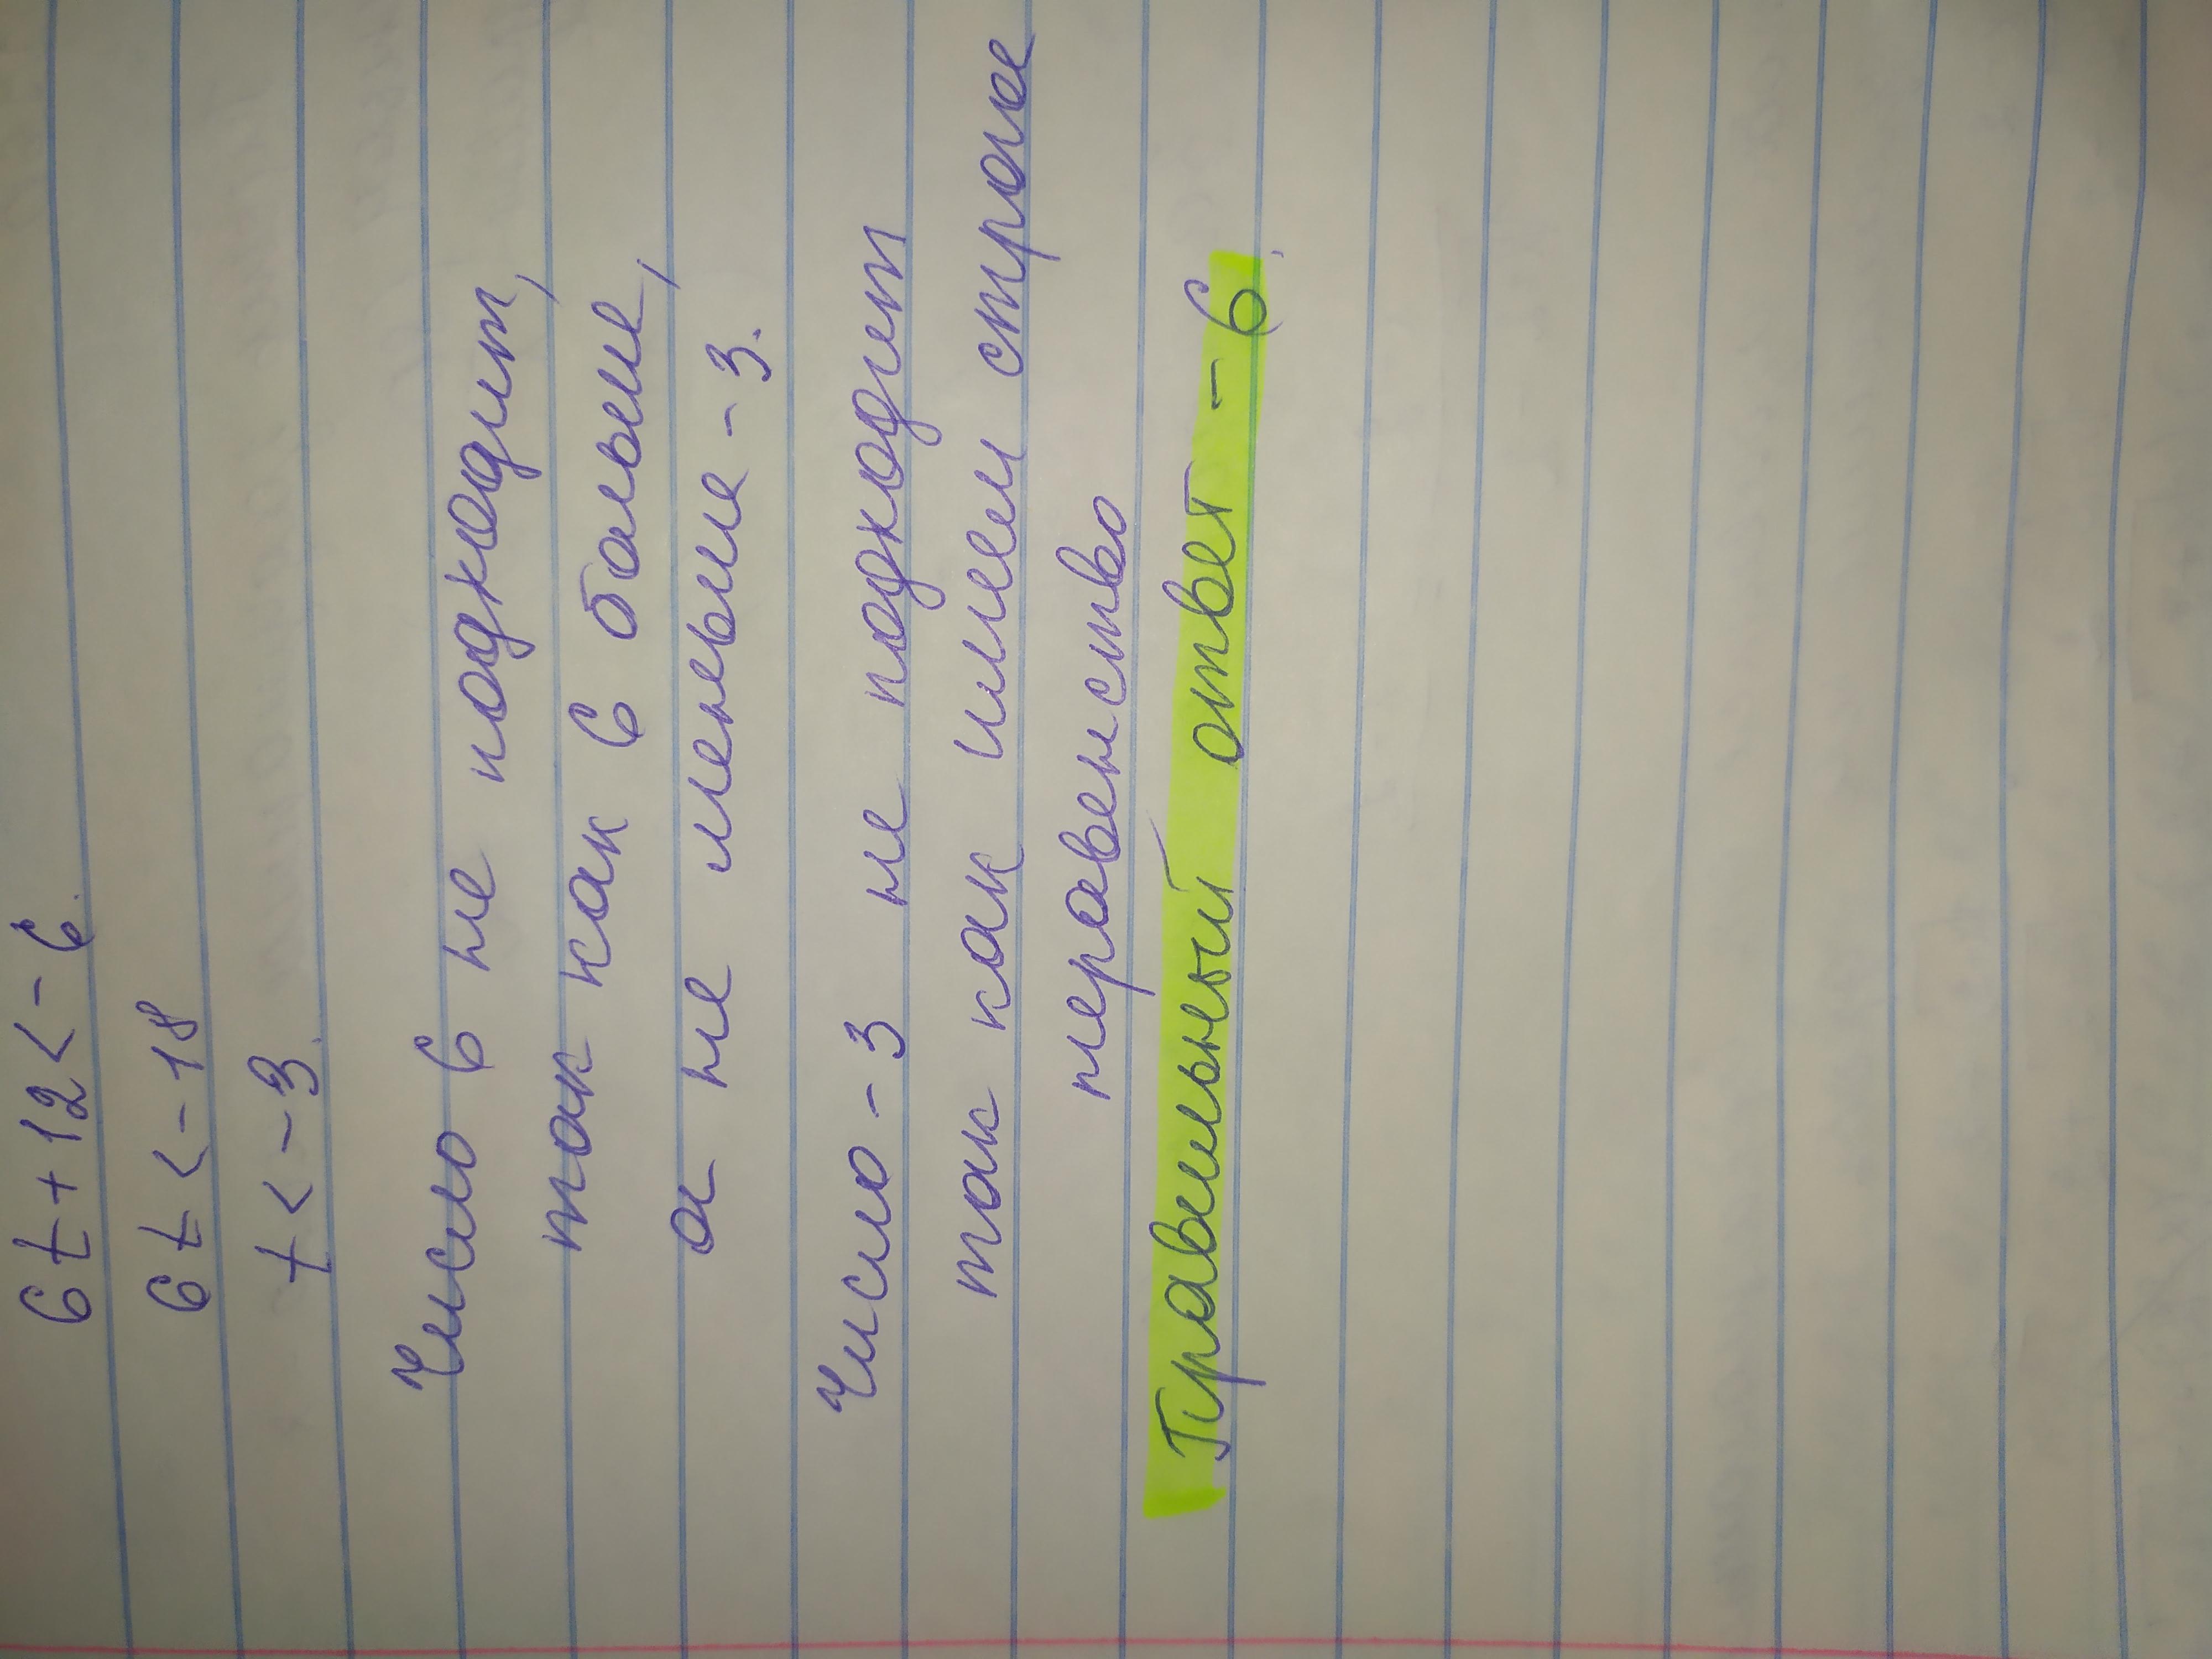 6t + 12 < - 6.
6t < - 18
t < - 3.
Число 6 не подходит,
так как 6 больше,
а не меньше - 3.
Число - 3 не подходит
так как имеем строгое
неравенство
Правильный ответ - 6.